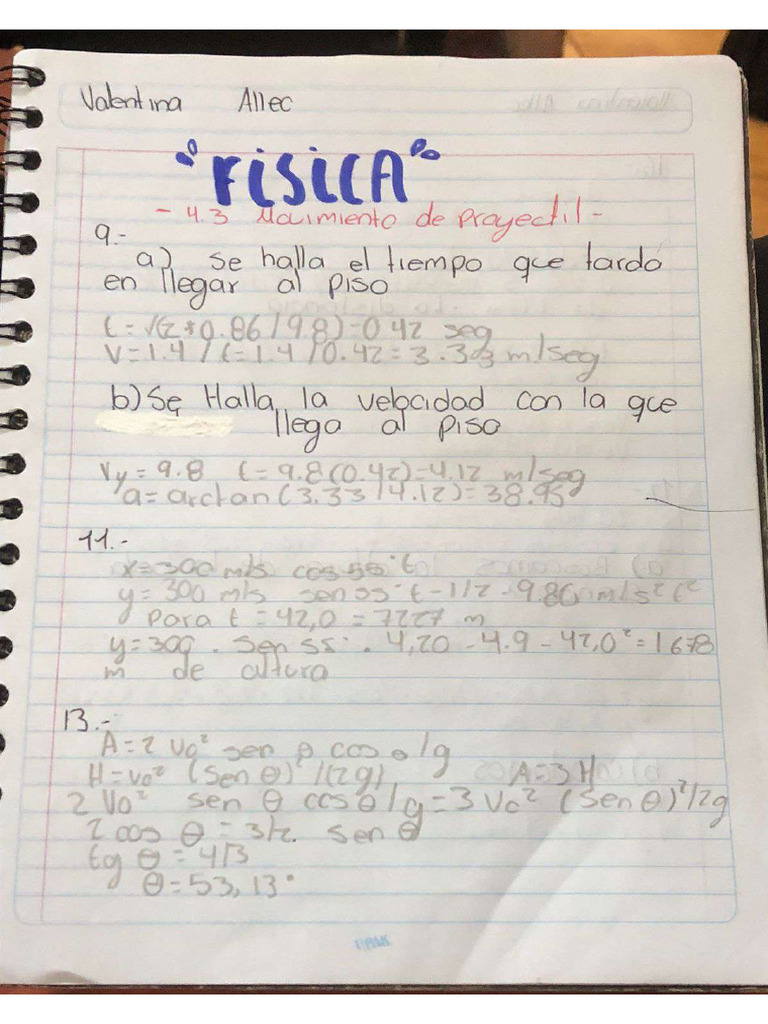 Valentina Allec
FISICA
- 4.3 Movimiento de Proyectil -
9.-
a) se halla el tiempo que tardo
en llegar al piso
t = √(2*0.86/9.8)=0.42 seg
V=1.4/t=1.4/0.42=3.33 m/seg
b) Se Halla la velocidad con la que
llega al piso
Vy=9.8 t=9.8(0.42)=4.12 m/seg
a=arctan(3.33/4.12)=38.95°
11.-
x=300 m/s cos 55° t
y=300 m/s sen 55° t-1/2 - 9.80 m/s² t²
Para t=42,0=7227 m
y=300 . Sen 55° . 4,20 - 4.9 - 42,0²=1678
m de altura
13.-
A=2 Vo² sen θ cos θ/g
H=Vo² (Sen θ)²/(2g) A=3H
2 Vo² sen θ cos θ/g=3 Vo² (Sen θ)²/2g
2 cos θ = 3/2 Sen θ
tg θ = 4/3
θ=53,13°